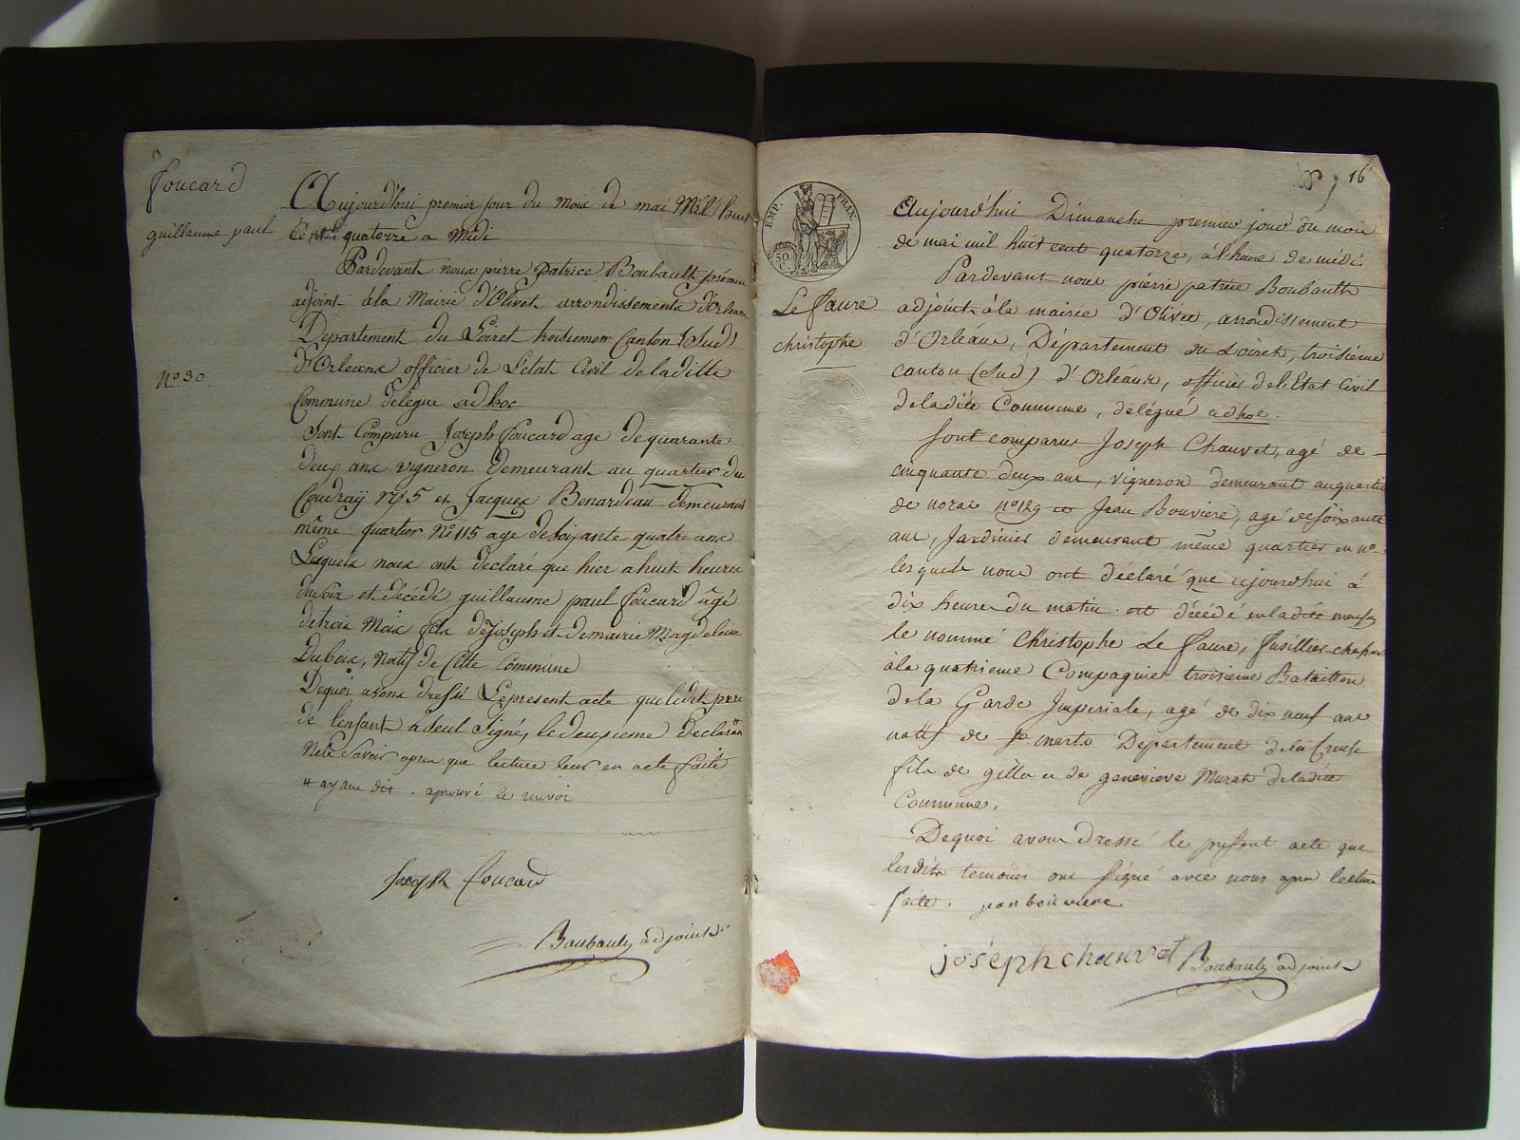 foucard
guillaume paul
N° 30
Aujourd'hui premier jour du mois de mai Mil huit
Cent quatorze a Midi
Pardevant nous pierre patrice Boubault premier
adjoint à la Mairie d'Olivet arrondissement d'Orleans
Departement du Loiret troisieme Canton (Sud)
d'Orleans officier de Letat Civil de la ditte
Commune delegué ad hoc
Sont Comparu Joseph foucard age de quarante
deux ans vigneron demeurant au quartier du
Coudraÿ N° 5 et Jacques Benardeau demeurant
même quartier N° 115 age de soixante quatre ans
Lesquels nous ont declaré que hier a huit heures
du soir et décédé guillaume paul foucard âgé
de trois Mois fils de Joseph et de marie Magdeleine
Dubois, natif de Cette Commune
De quoi avons dressé Le present acte que ledit pere
de l'enfant a seul Signé, le deuxieme declarant
Ne le Savoir apres que lecture leur en acte faite
# ayant dit . aprouvé le renvoi
Joseph foucard
Boubault adjoint
EMP. FRAN.
50 C.
16
Le faure
christophe
Aujourd'hui Dimanche premier jour du mois
de mai mil huit cent quatorze, à l'heure de midi
Pardevant nous pierre patrice Boubault
adjoint à la mairie d'Olivet, arrondissement
d'Orléans, Département du Loiret, troisième
canton (Sud) d'Orléans, officier de l'Etat Civil
de la dite Commune, délégué ad hoc.
Sont comparus Joseph Chauvet, agé de
cinquante deux ans, vigneron demeurant au quartier
de noras n° 129 et Jean Bouviere, agé de soixante
ans, Jardinier demeurant même quartier au n°
lesquels nous ont déclaré que aujourdhui à
dix heures du matin est décédé en la dite maison
le nommé Christophe Le faure, fusillier chasseur
à la quatrieme Compagnie troisieme Bataillon
de la Garde Imperiale, agé de dix neuf ans
natif de Departement de la Creuse
fils de gilles et de genevieve Murat de la dite
Commune.
De quoi avons dressé le présent acte que
lesdits temoins ont signé avec nous apres lecture
faite. jean bouviere
joséph chauvet Boubault adjoint